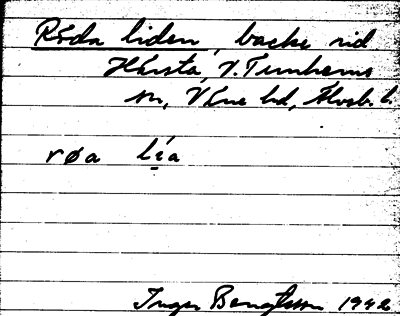 Röda liden, backe vid
Härsta, V. Tunhems
sn, Väne hd, Älvsb. l.
røa lía
Inger Bengtsson 1942